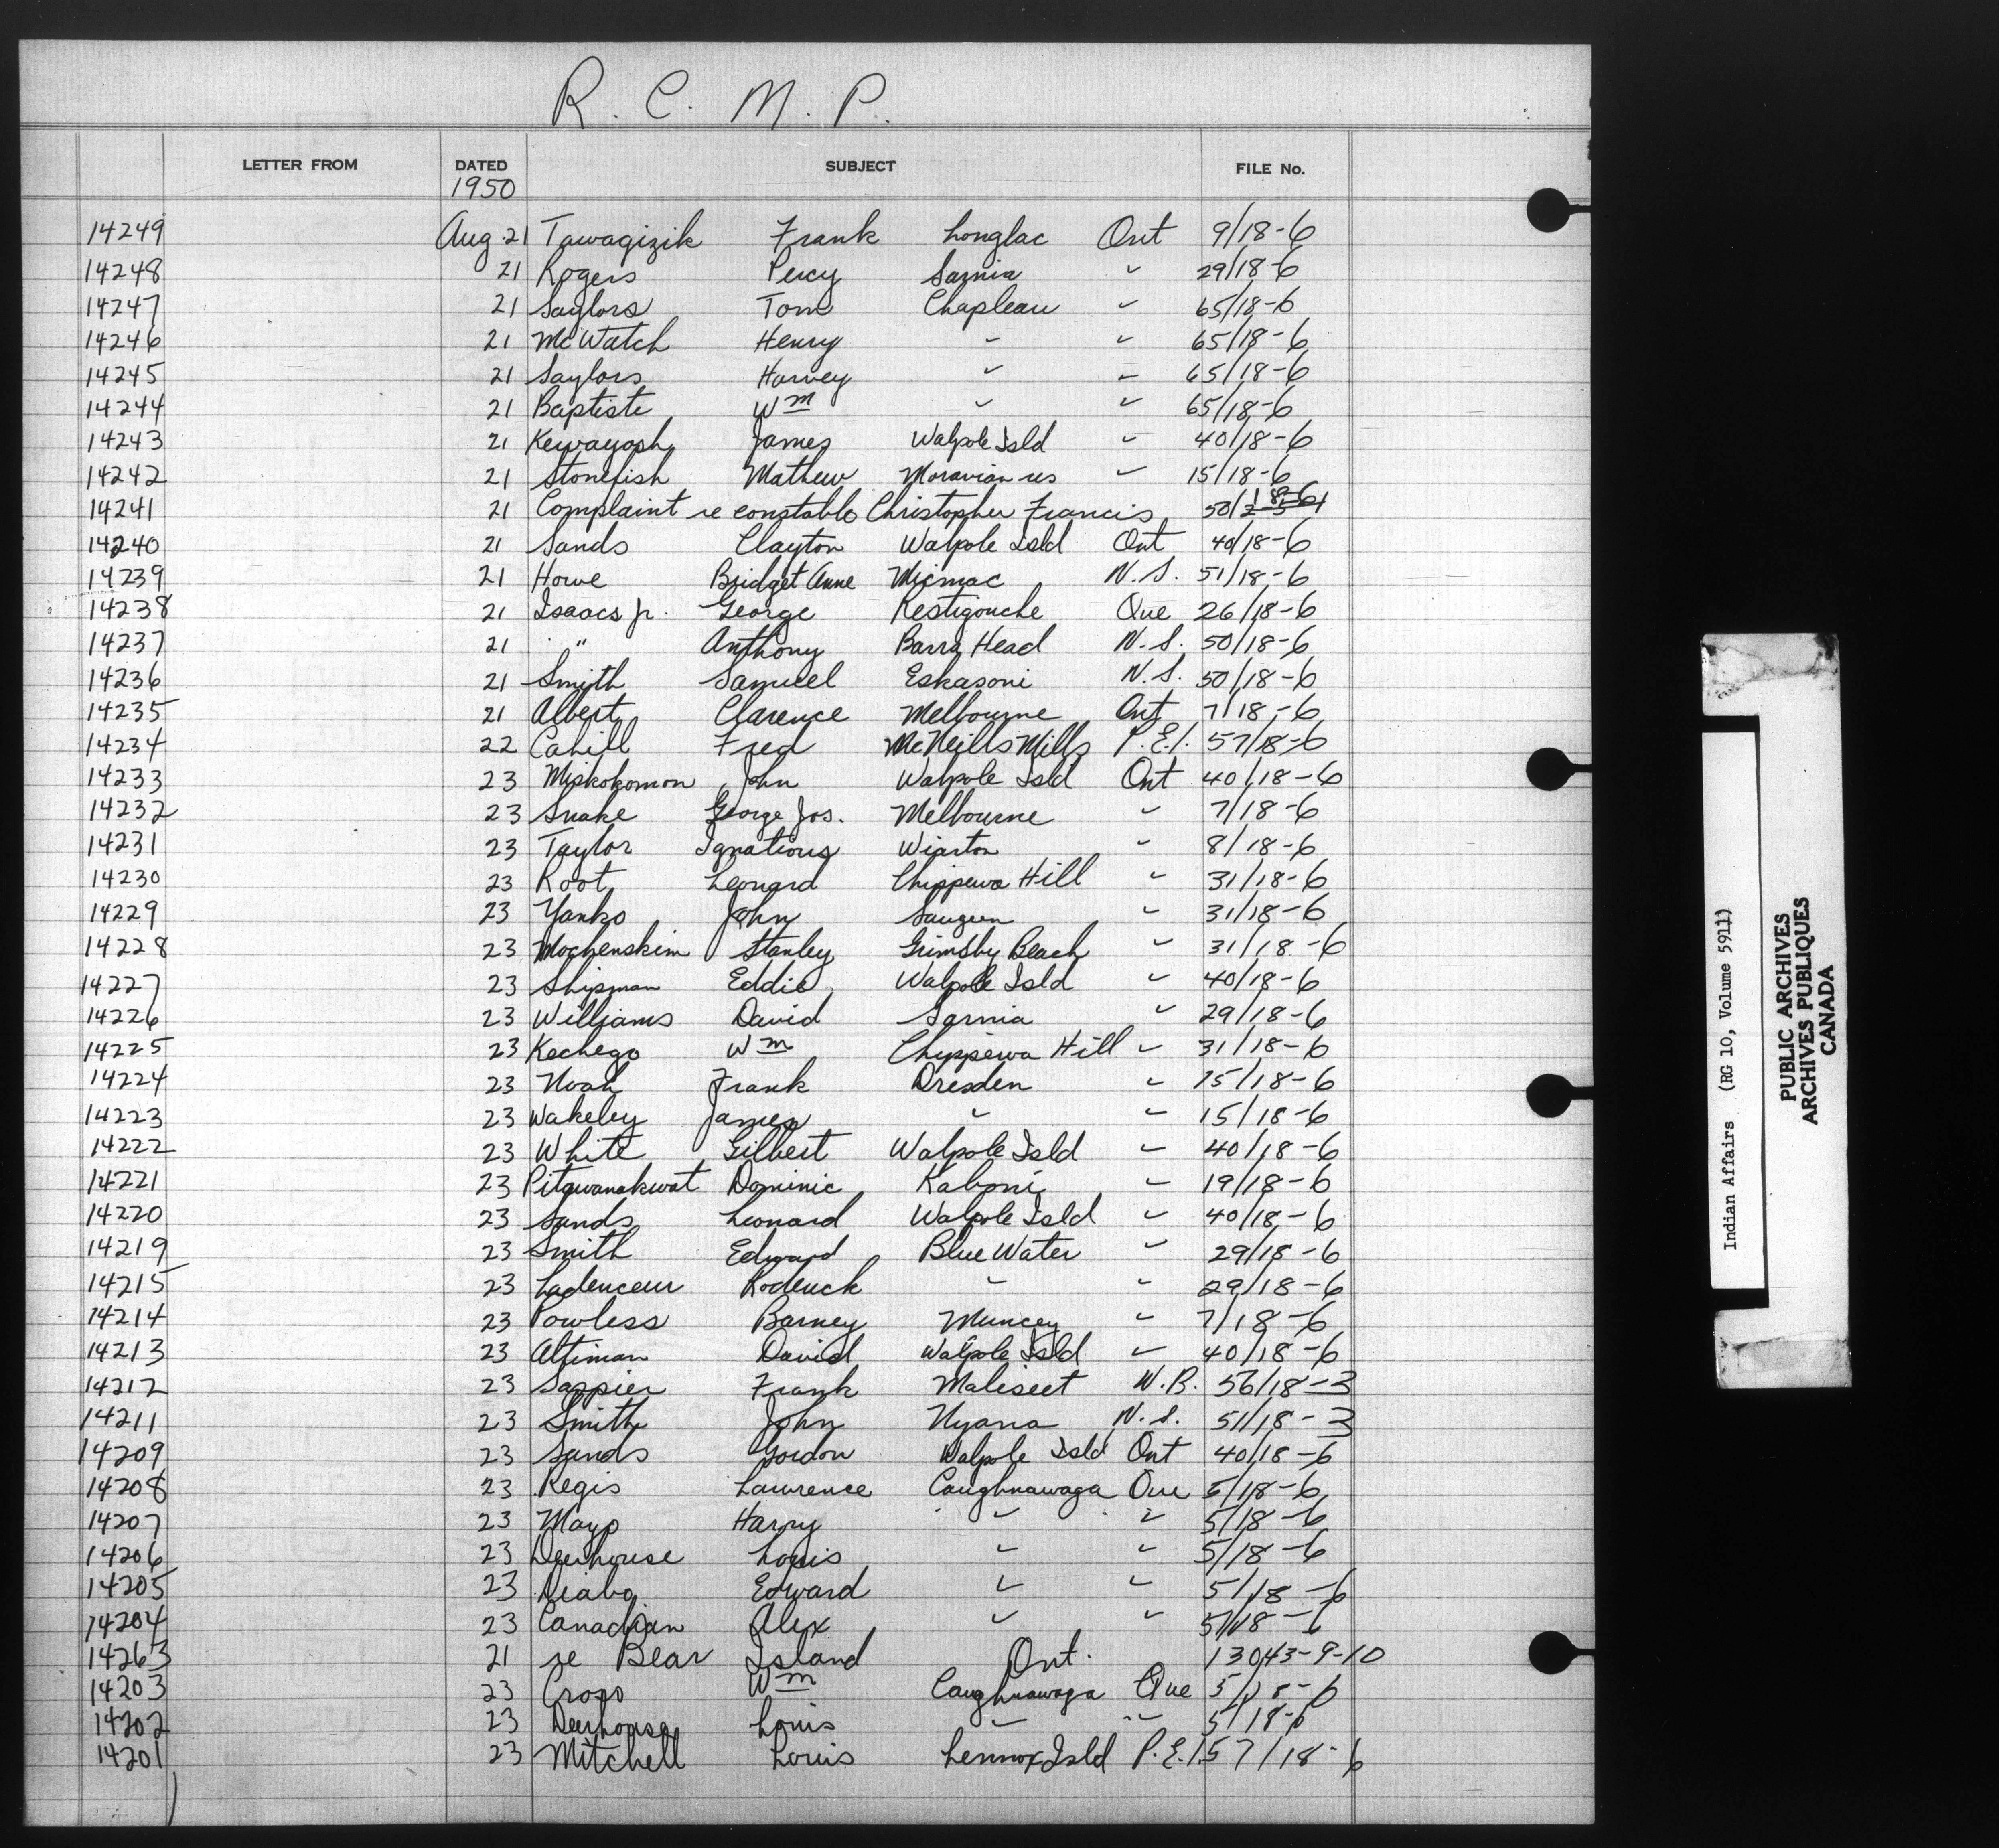 R. C. M. P.
LETTER FROM DATED SUBJECT FILE No.
1950
14249 Aug 21 Tawagizik Frank Longlac Ont 9/18-6
14248 21 Rogers Percy Sarnia " 29/18-6
14247 21 Saylors Tom Chapleau " 65/18-6
14246 21 McWatch Henry " " 65/18-6
14245 21 Saylors Harvey " " 65/18-6
14244 21 Baptiste Wm " " 65/18-6
14243 21 Kewayosh James Walpole Isld " 40/18-6
14242 21 Stonefish Mathew Moravian res " 15/18-6
14241 21 Complaint re constable Christopher Francis 50/18-6
14240 21 Sands Clayton Walpole Isld Ont 40/18-6
14239 21 Howe Bridget Anne Micmac N.S. 51/18-6
14238 21 Isaacs Jr. George Restigouche Que 26/18-6
14237 21 " Anthony Barra Head N.S. 50/18-6
14236 21 Smith Samuel Eskasoni N.S. 50/18-6
14235 21 Albert Clarence Melbourne Ont 7/18-6
14234 22 Cahill Fred McNeills Mills P.E.I. 57/18-6
14233 23 Miskokomon John Walpole Isld Ont 40/18-6
14232 23 Snake George Jos. Melbourne " 7/18-6
14231 23 Taylor Ignatious Wiarton " 8/18-6
14230 23 Root Leonard Chippewa Hill " 31/18-6
14229 23 Yanko John Saugeen " 31/18-6
14228 23 Mochenskim Stanley Grimsby Beach " 31/18-6
14227 23 Shipman Eddie Walpole Isld " 40/18-6
14226 23 Williams David Sarnia " 29/18-6
14225 23 Kechego Wm Chippewa Hill " 31/18-6
14224 23 Noah Frank Dresden " 15/18-6
14223 23 Wakeley James " " 15/18-6
14222 23 White Gilbert Walpole Isld " 40/18-6
14221 23 Pitawanakwat Dominic Kaboni " 19/18-6
14220 23 Sands Leonard Walpole Isld " 40/18-6
14219 23 Smith Edward Blue Water " 29/18-6
14215 23 Ladenceur Roderick " " 29/18-6
14214 23 Powless Barney Muncey " 7/18-6
14213 23 Altiman David Walpole Isld " 40/18-6
14212 23 Sappier Frank Maliseet N.B. 56/18-3
14211 23 Smith John Nyana N.S. 51/18-3
14209 23 Sands Gordon Walpole Isld Ont 40/18-6
14208 23 Regis Lawrence Caughnawaga Que 5/18-6
14207 23 Mayo Harry " " 5/18-6
14206 23 Deerhouse Louis " " 5/18-6
14205 23 Diabo Edward " " 5/18-6
14204 23 Canadian Alex " " 5/18-6
14263 21 re Bear Island Ont. 13043-9-10
14203 23 Cross Wm Caughnawaga Que 5/18-6
14202 23 Deerhouse Louis " " 5/18-6
14201 23 Mitchell Louis Lennox Isld P.E.I. 57/18-6
Indian Affairs (RG 10, Volume 5911)
PUBLIC ARCHIVES
ARCHIVES PUBLIQUES
CANADA